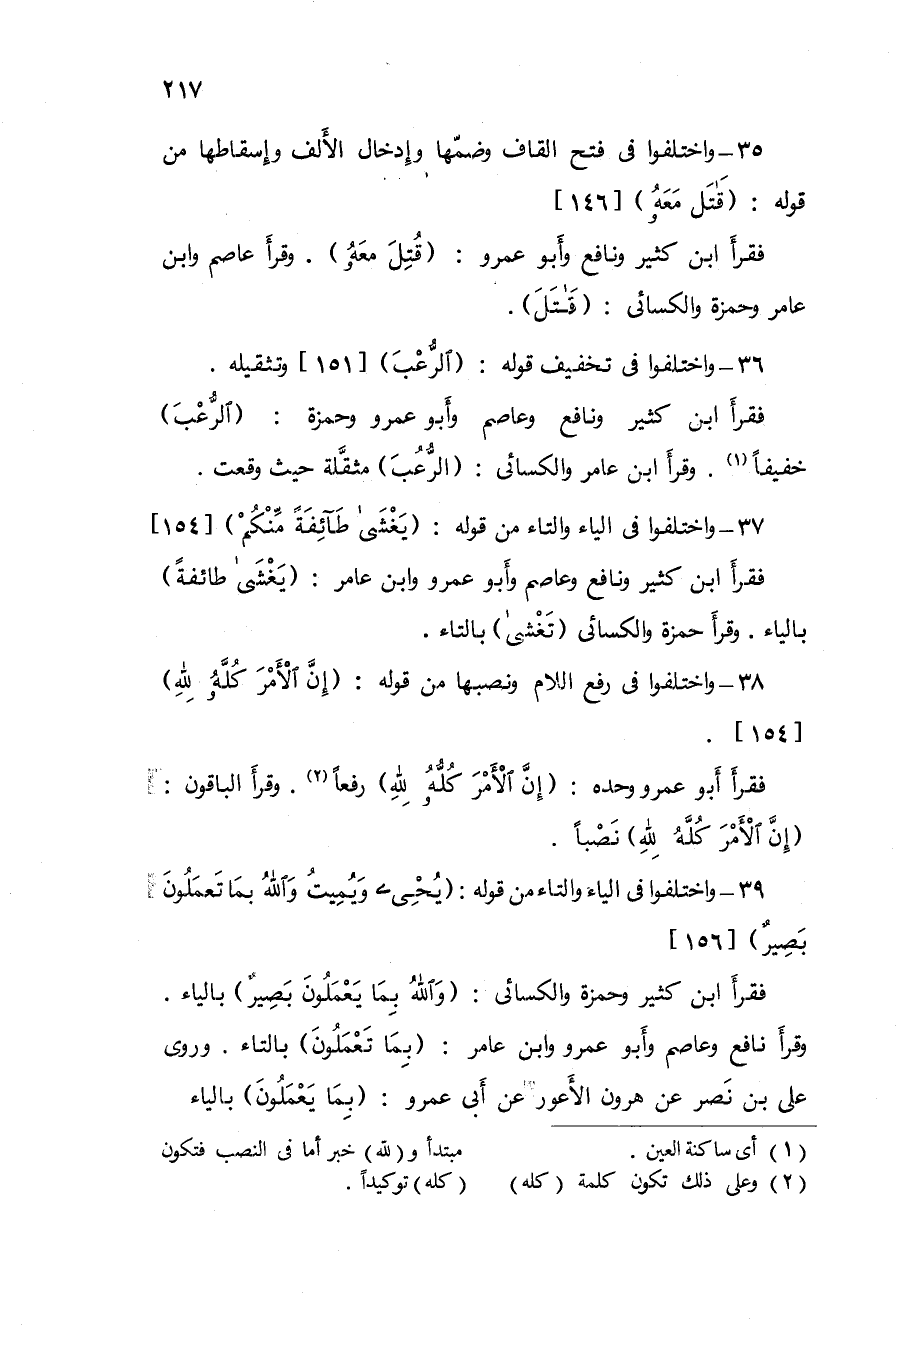 ٢١٧
٣٥ – واختلفوا فى فتح القاف وضمّها وإدخال الأَلف وإسقاطها من
قوله : ( قَٰتَلَ مَعَهُۥ ) [ ١٤٦ ]
فقرأَ ابن كثير ونافع وأَبو عمرو : ( قُتِلَ معَهُۥ ) . وقرأَ عاصم وابن
عامر وحمزة والكسائى : ( قَٰتَلَ ) .
٣٦ – واختلفوا فى تخفيف قوله : ( ٱلرُّعْبَ ) [ ١٥١ ] وتثقيله .
فقرأَ ابن كثير ونافع وعاصم وأَبو عمرو وحمزة : ( ٱلرُّعْبَ )
خفيفاً (١) . وقرأَ ابن عامر والكسائى : ( الرُّعُبَ ) مثقَّلة حيث وقعت .
٣٧ – واختلفوا فى الياء والتاء من قوله : ( يَغْشَىٰ طَآئِفَةً مِّنْكُمْ ) [ ١٥٤ ]
فقرأَ ابن كثير ونافع وعاصم وأَبو عمرو وابن عامر : ( يَغْشَىٰ طائفةً )
بالياء . وقرأَ حمزة والكسائى ( تَغْشىٰ ) بالتاء .
٣٨ – واختلفوا فى رفع اللام ونصبها من قوله : ( إِنَّ ٱلْأَمْرَ كُلَّهُۥ لِلهِ )
[ ١٥٤ ] .
فقرأَ أَبو عمرو وحده : ( إِنَّ ٱلْأَمْرَ كُلُّهُۥ لِلهِ ) رفعاً (٢) . وقرأَ الباقون :
( إِنَّ ٱلْأَمْرَ كُلَّهُ لِلهِ ) نَصْباً .
٣٩ – واختلفوا فى الياء والتاء من قوله : ( يُحْىِۦ وَيُمِيتُ وَٱللهُ بمَا تَعمَلُونَ
بَصِيرٌ ) [ ١٥٦ ]
فقرأَ ابن كثير وحمزة والكسائى : ( وَٱللهُ بِمَا يَعْمَلُونَ بَصِيرٌ ) بالياء .
وقرأَ نافع وعاصم وأَبو عمرو وابن عامر : ( بِمَا تَعْمَلُونَ ) بالتاء . وروى
على بن نَصر عن هرون الأَعور عن أَبى عمرو : ( بِمَا يَعْمَلُونَ ) بالياء
( ١ ) أى ساكنة العين .
( ٢ ) وعلى ذلك تكون كلمة ( كله )
مبتدأ و ( لله ) خبر أما فى النصب فتكون
( كله ) توكيداً .